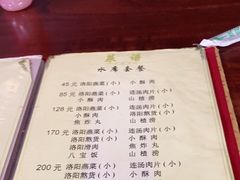 菜谱
水席套餐
45 元 洛阳燕菜(小) 连汤肉片(小)
小酥肉
85 元 洛阳燕菜(小) 连汤肉片(小)
小酥肉 山楂涝
128 元 洛阳燕菜(小) 连汤肉片(小)
小酥肉 洛阳熬货(小)
焦炸丸 山楂涝
170 元 洛阳燕菜(小) 连汤肉片(小)
洛阳熬货(小) 小酥肉
洛阳滑肉 焦炸丸
八宝饭 山楂涝
200 元 洛阳燕菜(小) 连汤肉片(小)
洛阳熬货(小) 小酥肉